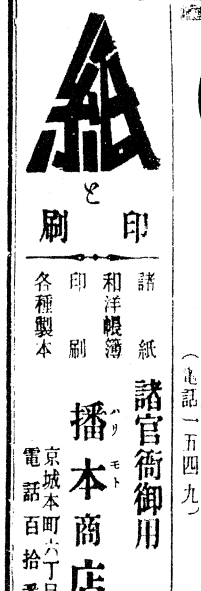 紙
と
印刷
諸紙
和洋帳簿
印刷
各種製本
諸官衙御用
播本商店
ハリモト
京城本町六丁目
電話百拾
(電話一五四九)